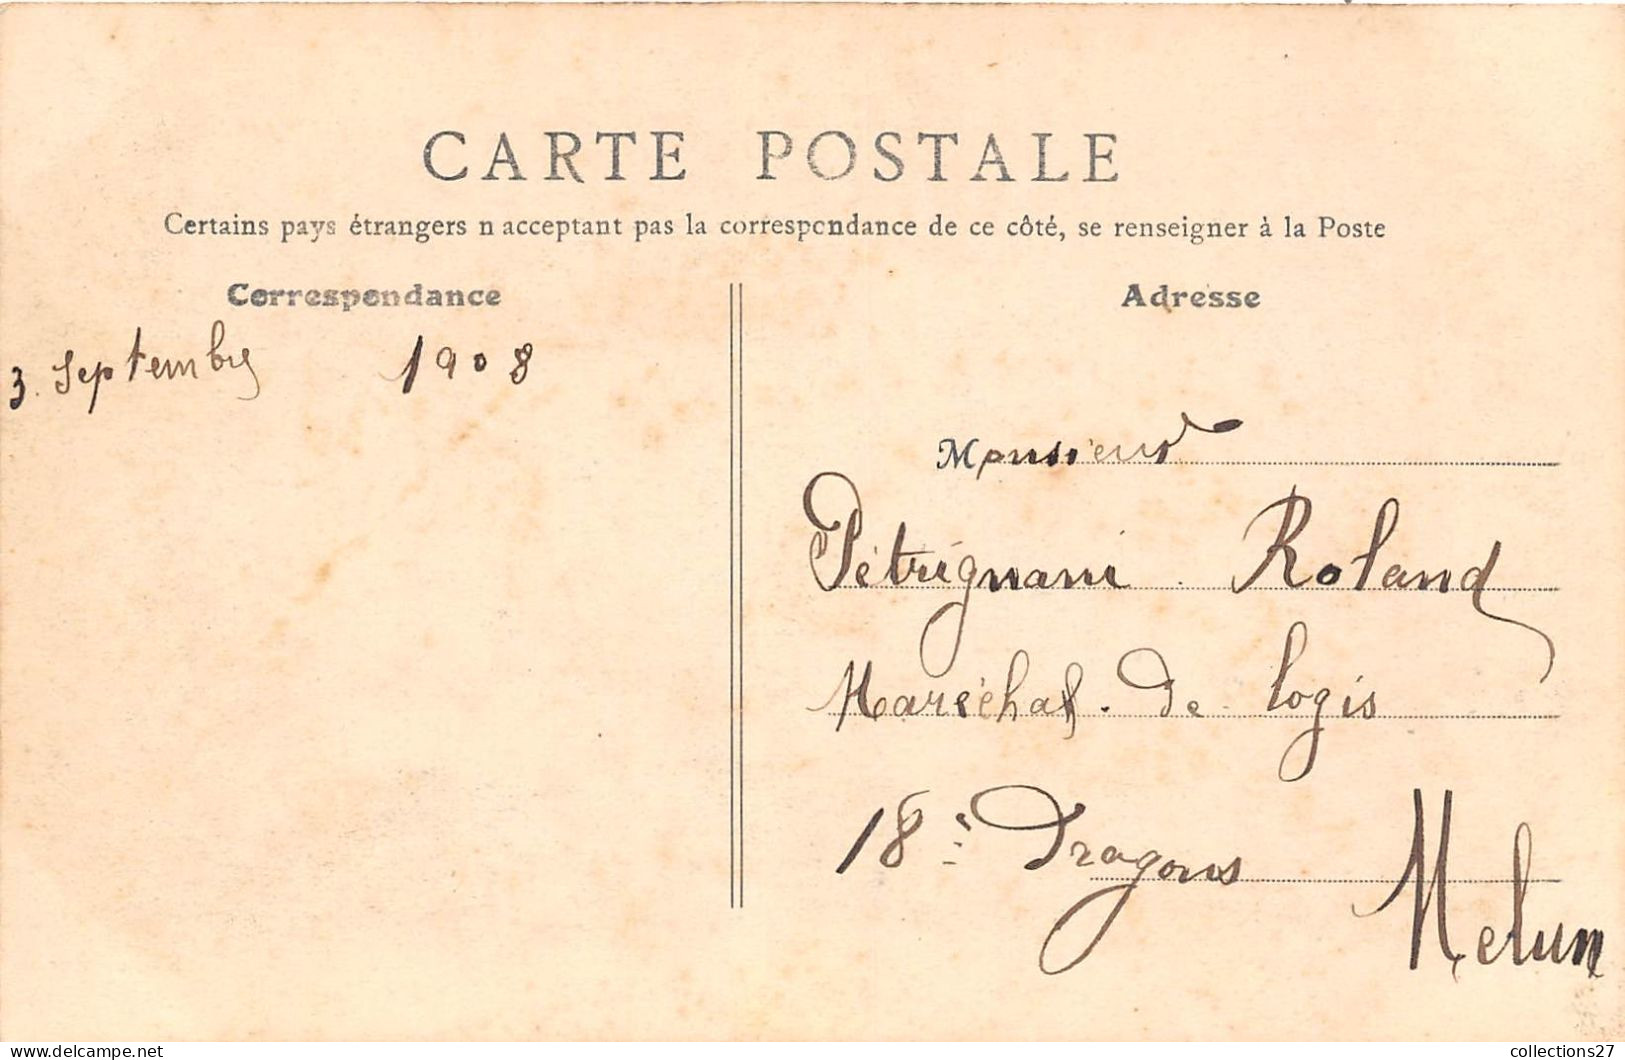 CARTE POSTALE
Certains pays étrangers n acceptant pas la correspondance de ce côté, se renseigner à la Poste
Correspondance
Adresse
3. Septembre 1908
Monsieur
Pétrignani Roland
Maréchal. de logis
18e Dragons Melun
www.delcampe.net
collections27